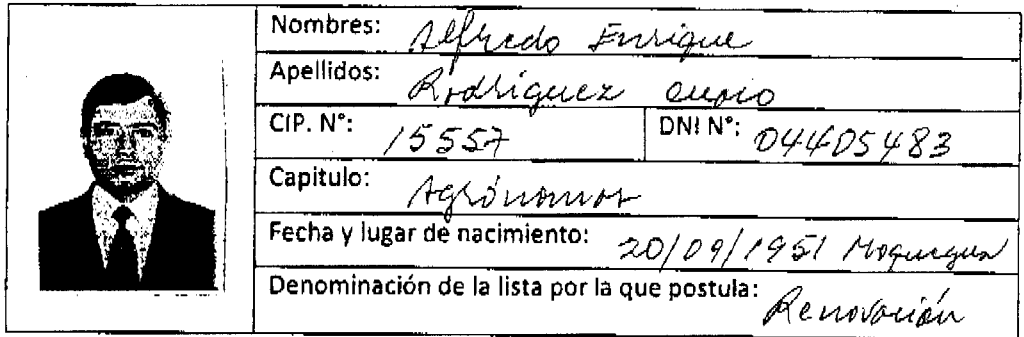 Nombres: Alfredo Enrique
Apellidos: Rodríguez
CIP. N°: 15557 DNI N°: 04405483
Capitulo: Agrónomos
Fecha y lugar de nacimiento: 20/09/1951 Moquegua
Denominación de la lista por la que postula: Renovación